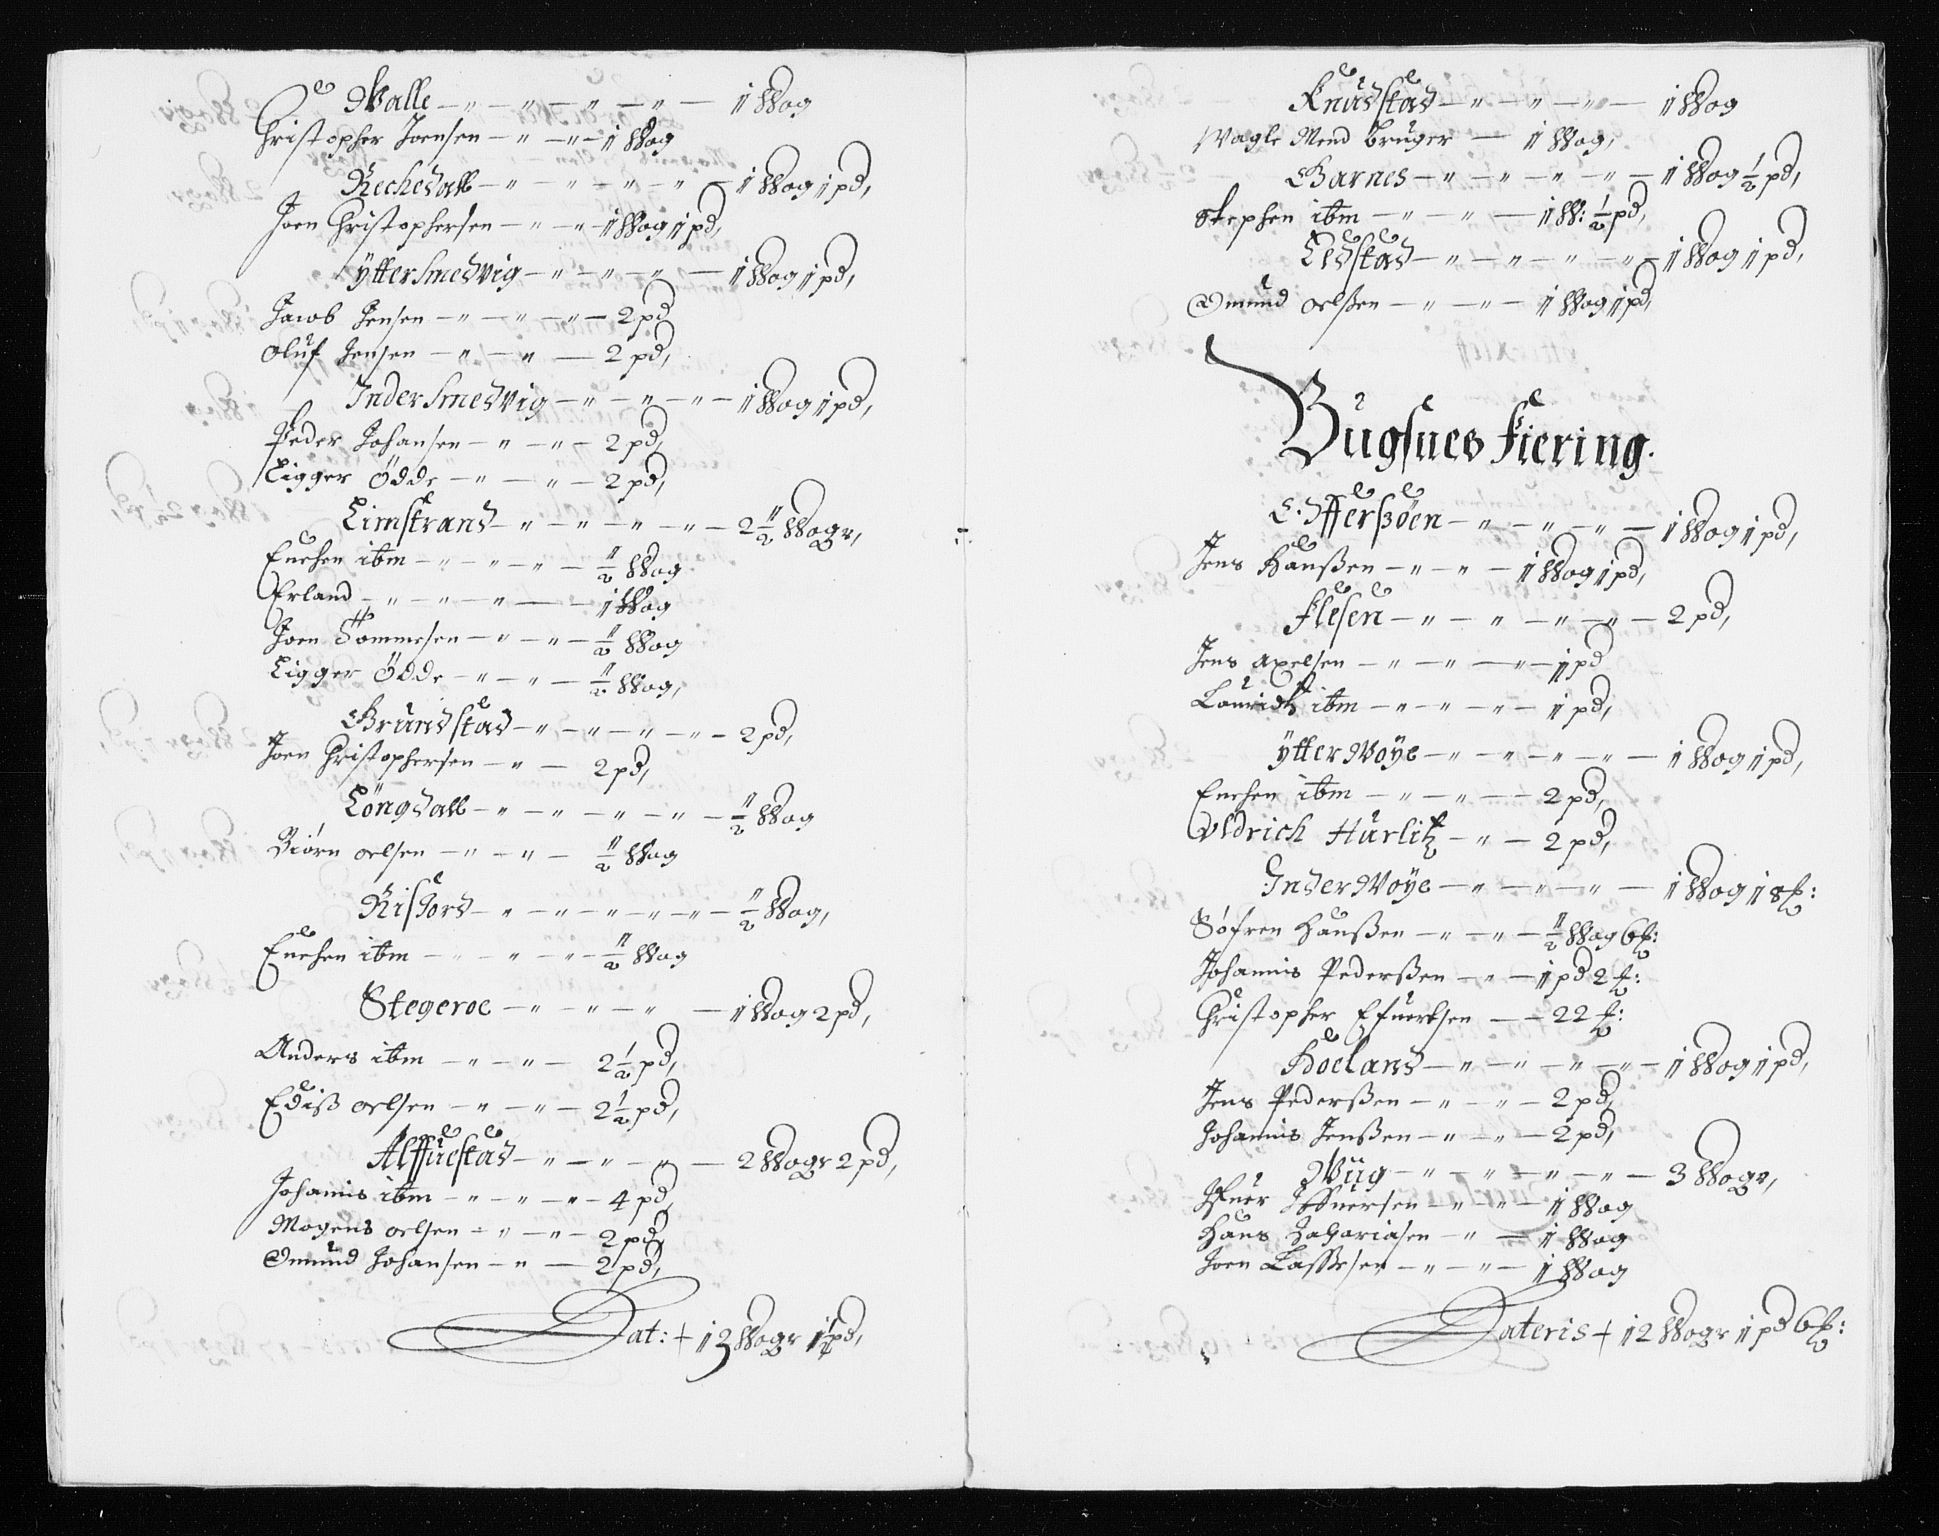 Walle — " — " — " — " — 1 Wog
Christopher Joensen — " — " — 1 Wog
Rechedall — " — " — " — " — 1 Wog 1 pd,
Joen Christophersen — " — " — 1 Wog 1 pd,
Ytter Smedvig — " — " — " — 1 Wog 1 pd,
Jacob Jensen — " — " — " — 2 pd
Oluf Jensen — " — " — 2 pd,
Inder Smedvig — " — " — " — 1 Wog 1 pd,
Peder Johansen — " — " — 2 pd,
Ligger Ödde — " — " — 2 pd,
Limstrand — " — " — " — " — 2 1/2 Wogr,
Enchen ibm — " — " — " — 1/2 Wog
Erland — " — " — " — 1 Wog
Joen Tommesen — " — " — 1/2 Wog
Ligger Ödde — " — " — 1/2 Wog,
Grundstad — " — " — " — " — 2 pd,
Joen Christophersen — " — 2 pd,
Löngdall — " — " — " — " — 1/2 Wog
Biörn oelsen — " — " — 1/2 Wog
Risiord — " — " — " — " — " — 1/2 Wog,
Enchen ibm — " — " — " — 1/2 Wog
Stegeroe — " — " — " — 1 Wog 2 pd,
Anders ibm — " — " — 2 1/2 pd,
Ediss oelsen — " — " — 2 1/2 pd,
Alffuestad — " — " — " — 2 Wogr 2 pd,
Johannis ibm — " — " — " — 4 pd
Mogens oelsen — " — " — 2 pd,
Omund Johansen — " — 2 pd,
Lat: + 13 Wogr 1 1/2 pd,
Knudstad — " — " — " — 1 Wog
Wagle Mend bruger — 1 Wog,
Garnes — " — " — " — " — 1 Wog 1/2 pd,
Stephen ibm — " — " — 1 W: 1/2 pd,
Eldstad — " — " — " — " — 1 Wog 1 pd,
Omund oelßen — " — " — 1 Wog 1 pd,
Bugsnes Fiering.
E. Offerßöen — " — " — " — 1 Wog 1 pd,
Jens Hanßen — " — " — 1 Wog 1 pd,
Flesen — " — " — " — " — 2 pd,
Jens axelsen — " — " — " — 1 pd
Lauridtz ibm — " — " — " — 1 pd,
Ytter Woye — " — " — " — " — 1 Wog 1 pd,
Enchen ibm — " — " — 2 pd,
Uldrich Hurlitz — " — 2 pd,
Inder Woye — " — " — " — 1 Wog 18 ℔:
Söfren Hanßen — " — " — 1/2 Wog 6 ℔:
Johannis Pederßen — " — 1 pd 2 ℔:
Christopher Efuertsen — — 22 ℔:
Hoeland — " — " — " — " — 1 Wog 1 pd,
Jens Pederßen — " — " — 2 pd,
Johannis Jenßen — " — " — 2 pd,
Wiig — " — " — " — " — 3 Wogr,
Ifuer Iffuersen — " — " — 1 Wog
Hans Zachariasen — " — 1 Wog
Joen Lassesen — " — " — 1 Wog
Lateris + 12 Wogr 1 pd 6 ℔: